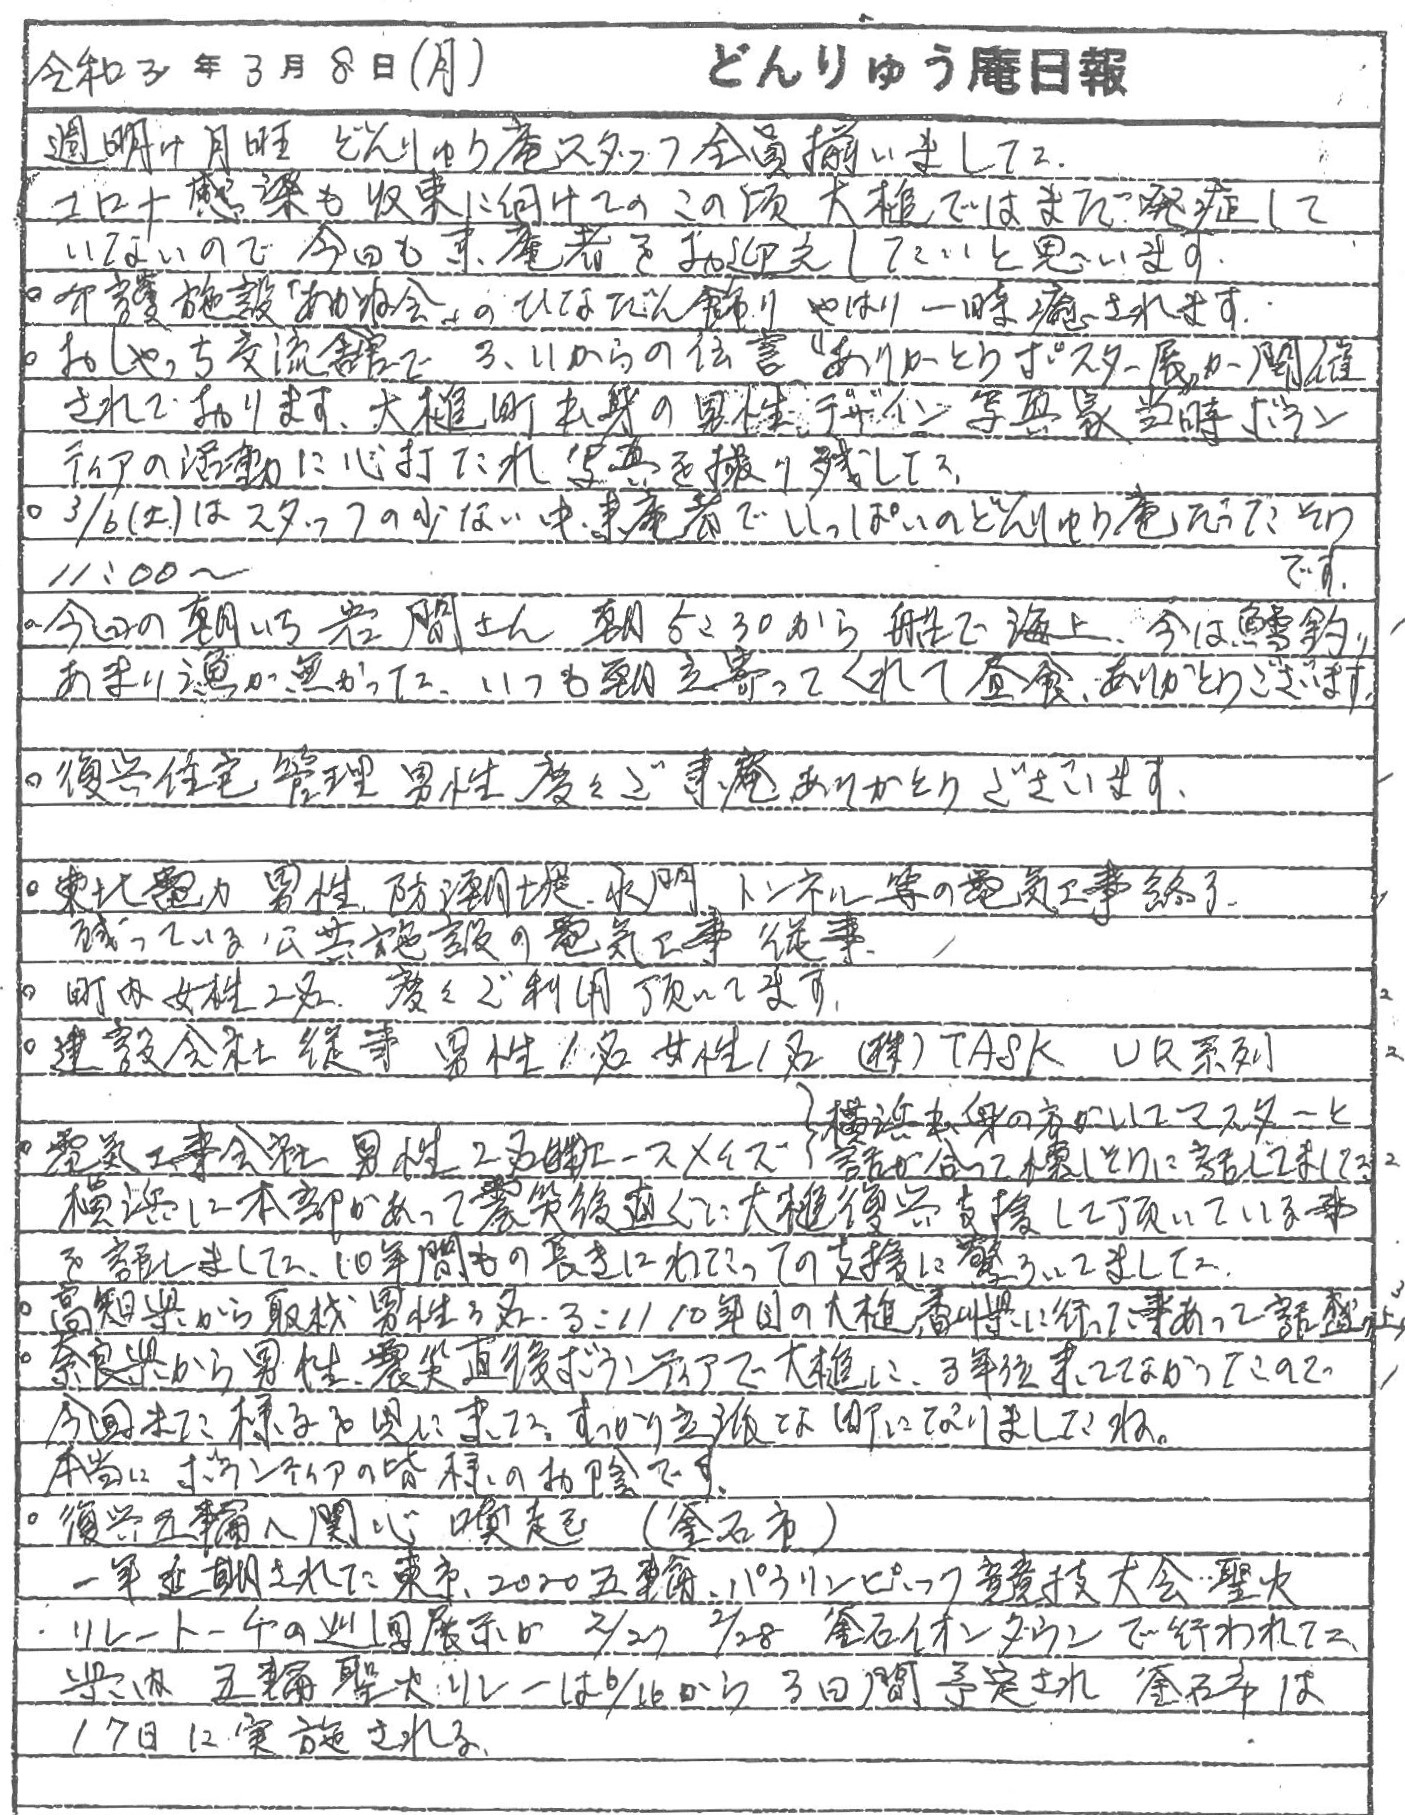 令和3年3月8日(月) どんりゅう庵日報
週明け月旺 どんりゅう庵スタッフ全員揃いました.
コロナ感染も収束に向けての この頃 大槌ではまだ発症して
いないので 今日も来庵者をお迎えしたいと思います.
○ 介護施設「あかね会」のひなだん飾り やはり一時癒されます.
○ おしゃっち交流館で 3.11からの伝言 "ありがとうポスター展"が開催
されております、大槌町出身の男性 デザイン 写真家 当時ボラン
ティアの活動に心打たれ 写真を撮り残した、
○ 3/6(土)はスタッフの少ない中、来庵者でいっぱいのどんりゅう庵だったそう
です.
11:00〜
○ 今日の朝いち 岩間さん 朝5:30から船で海上、今は鱈釣り 1
あまり漁が無かった、いつも朝立寄ってくれて昼食、ありがとうございます.
○ 復興住宅 管理 男性 度々ご来庵ありがとうございます. 1
○ 東北電力 男性 防潮堤.水門 トンネル等の電気工事終了. 1
残っている公共施設の電気工事 従事.
○ 町内女性2名. 度々ご利用頂いてます. 2
○ 建設会社 従事 男性1名 女性1名 (株)TASK UR系列 2
横浜出身の方がいてマスターと
○ 電気工事会社 男性2名 (株)エースメイズ 話が合って懐しそうに話してました 2
横浜に本部があって震災後直ぐに大槌復興支援して頂いている事
を話しました、10年間もの長きにわたっての支援に驚ろいてました.
○ 高知県から取材 男性3名. 3:11 10年目の大槌 香川県に行った事あって話盛り上り 3
○ 奈良県から男性、震災直後ボランティアで大槌に、3年位来てなかったので 1
今回また様子を見に来た。すっかり立派な町になりましたね。
本当にボランティアの皆様のお陰です.
○ 復興五輪へ関心 喚起を (釜石市)
一年延期された東京.2020五輪、パラリンピック競技大会 聖火
リレートーチの巡回展示が 2/27 2/28 釜石イオンタウンで行われた、
県内 五輪聖火リレーは6/16から3日間予定され 釜石市は
17日に実施される、